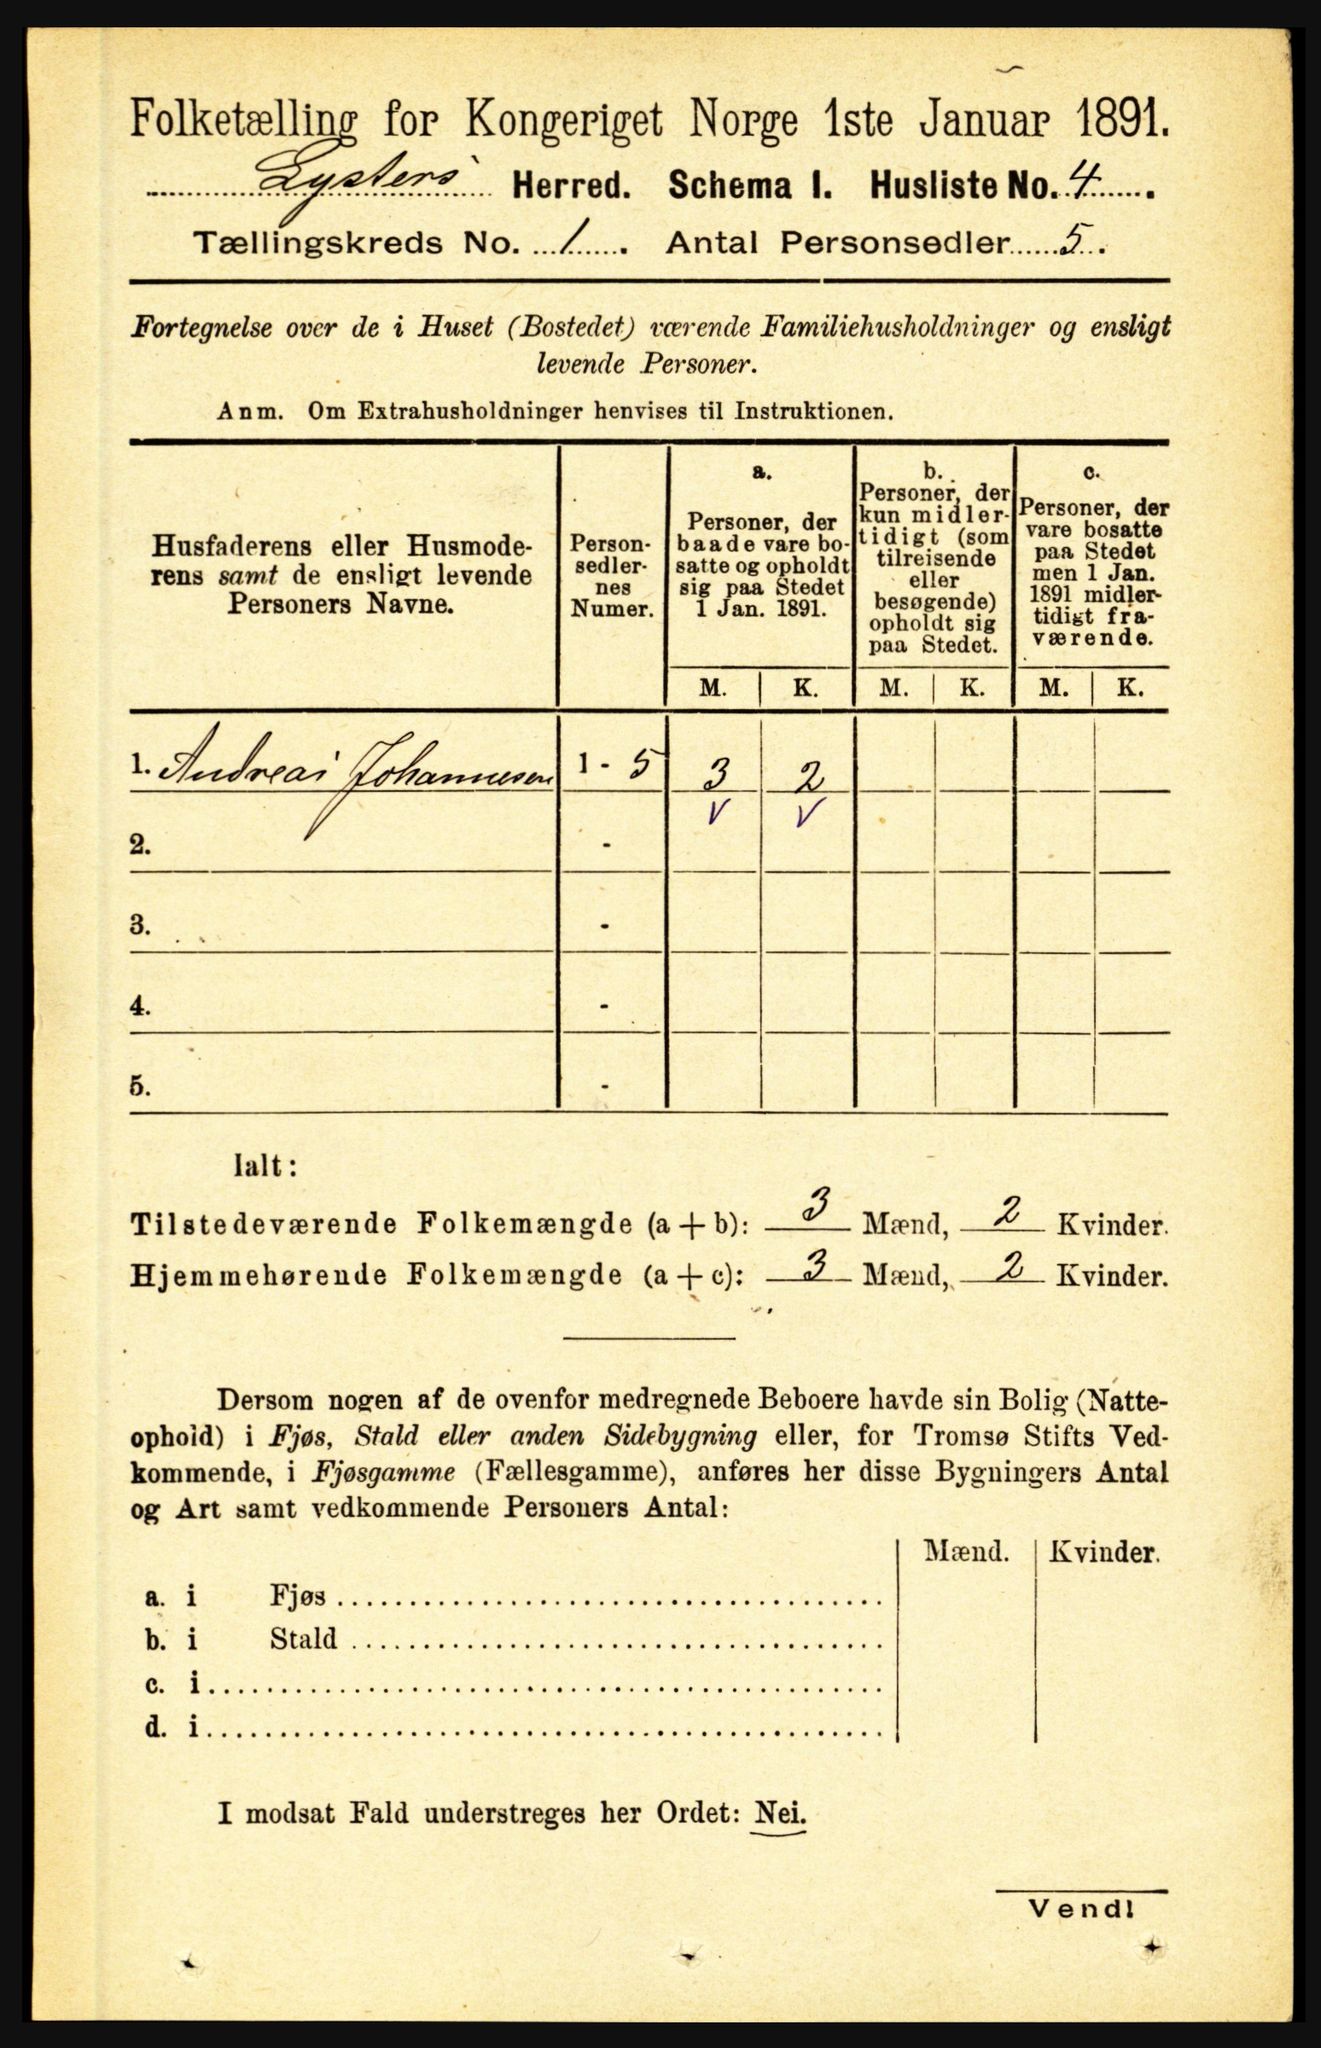 Folketælling for Kongeriget Norge 1ste Januar 1891.
Lysters Herred. Schema I. Husliste No. 4.
Tællingskreds No. 1. Antal Personsedler 5.
Fortegnelse over de i Huset (Bostedet) værende Familiehusholdninger og ensligt
levende Personer.
Anm. Om Extrahusholdninger henvises til Instruktionen.
Husfaderens eller Husmode-
rens samt de ensligt levende
Personers Navne.
Person-
sedler-
nes
Numer.
a.
Personer, der
baade vare bo-
satte og opholdt
sig paa Stedet
1 Jan. 1891.
b.
Personer, der
kun midler-
tidigt (som
tilreisende
eller
besøgende)
opholdt sig
paa Stedet.
c.
Personer, der
vare bosatte
paa Stedet
men 1 Jan.
1891 midler-
tidigt fra-
værende.
M. K. M. K. M. K.
1. Andreas Johannesen 1 - 5 3 2
V V
2. -
3. -
4. -
5. -
Ialt:
Tilstedeværende Folkemængde (a + b): 3 Mænd, 2 Kvinder.
Hjemmehørende Folkemængde (a + c): 3 Mænd, 2 Kvinder.
Dersom nogen af de ovenfor medregnede Beboere havde sin Bolig (Natte-
ophold) i Fjøs, Stald eller anden Sidebygning eller, for Tromsø Stifts Ved-
kommende, i Fjøsgamme (Fællesgamme), anføres her disse Bygningers Antal
og Art samt vedkommende Personers Antal:
Mænd. Kvinder.
a. i Fjøs
b. i Stald
c. i
d. i
I modsat Fald understreges her Ordet: Nei.
Vend!